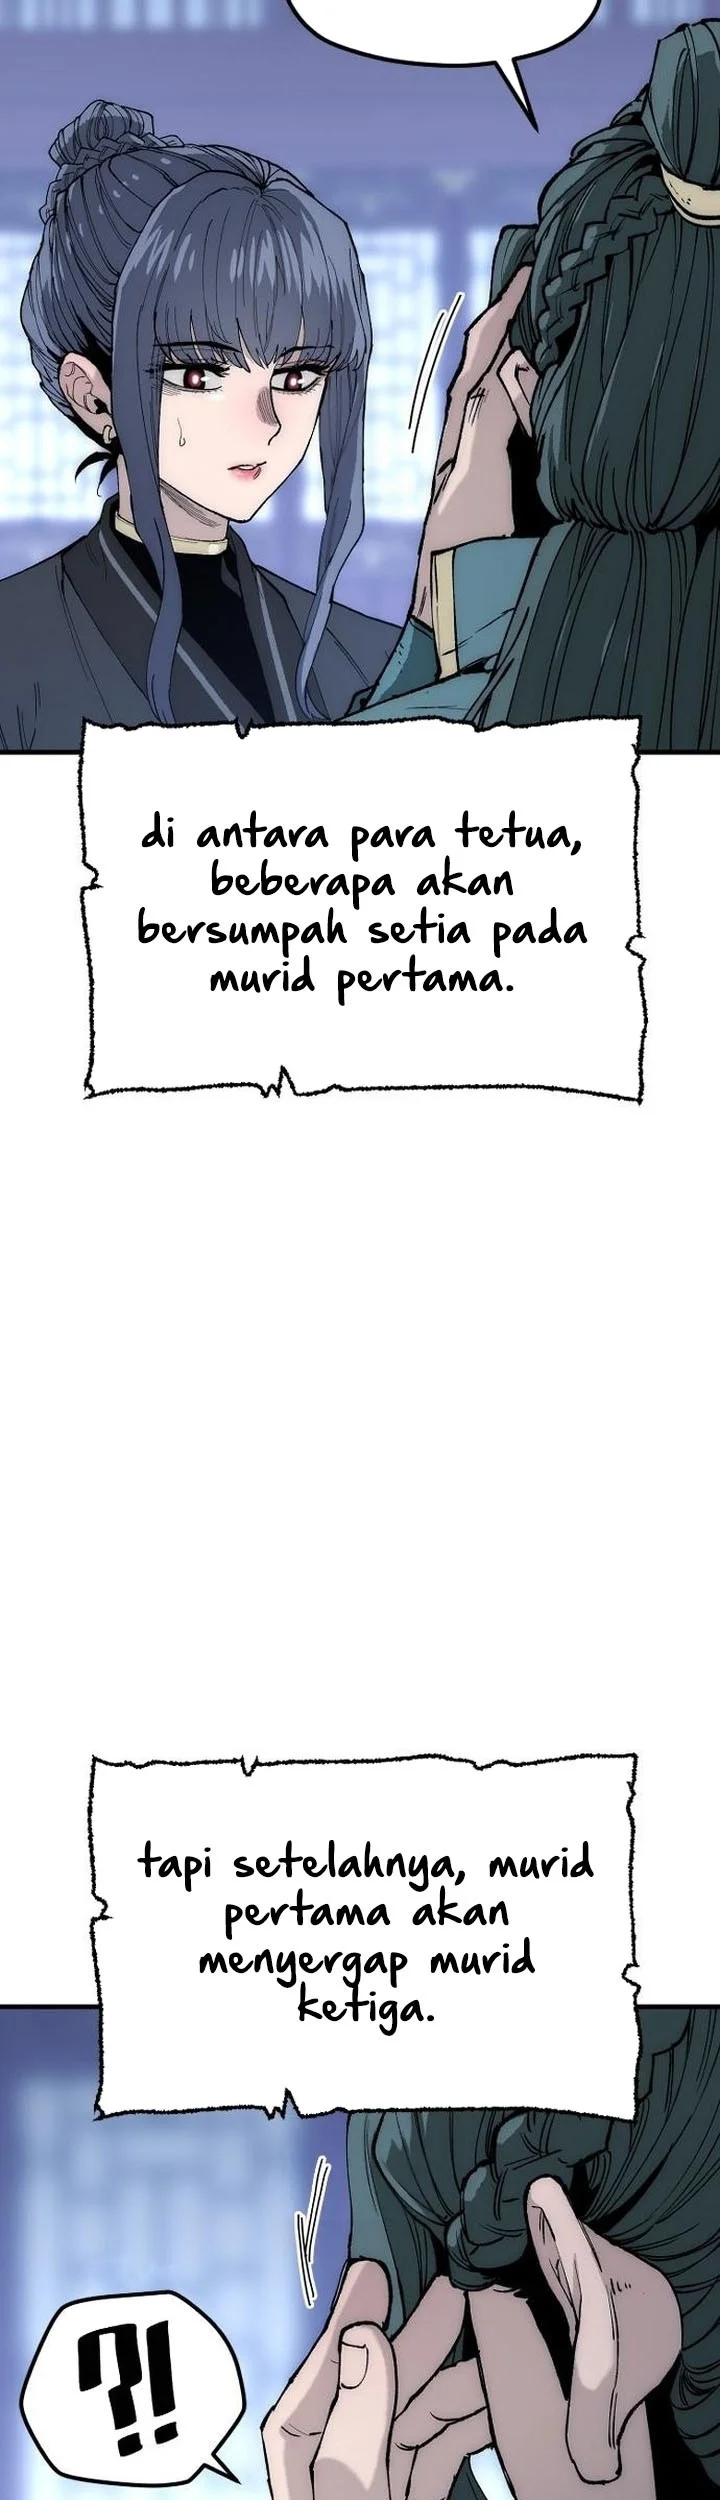 di antara para tetua,
beberapa akan
bersumpah setia pada
murid pertama.
tapi setelahnya, murid
pertama akan
menyergap murid
ketiga.
?!